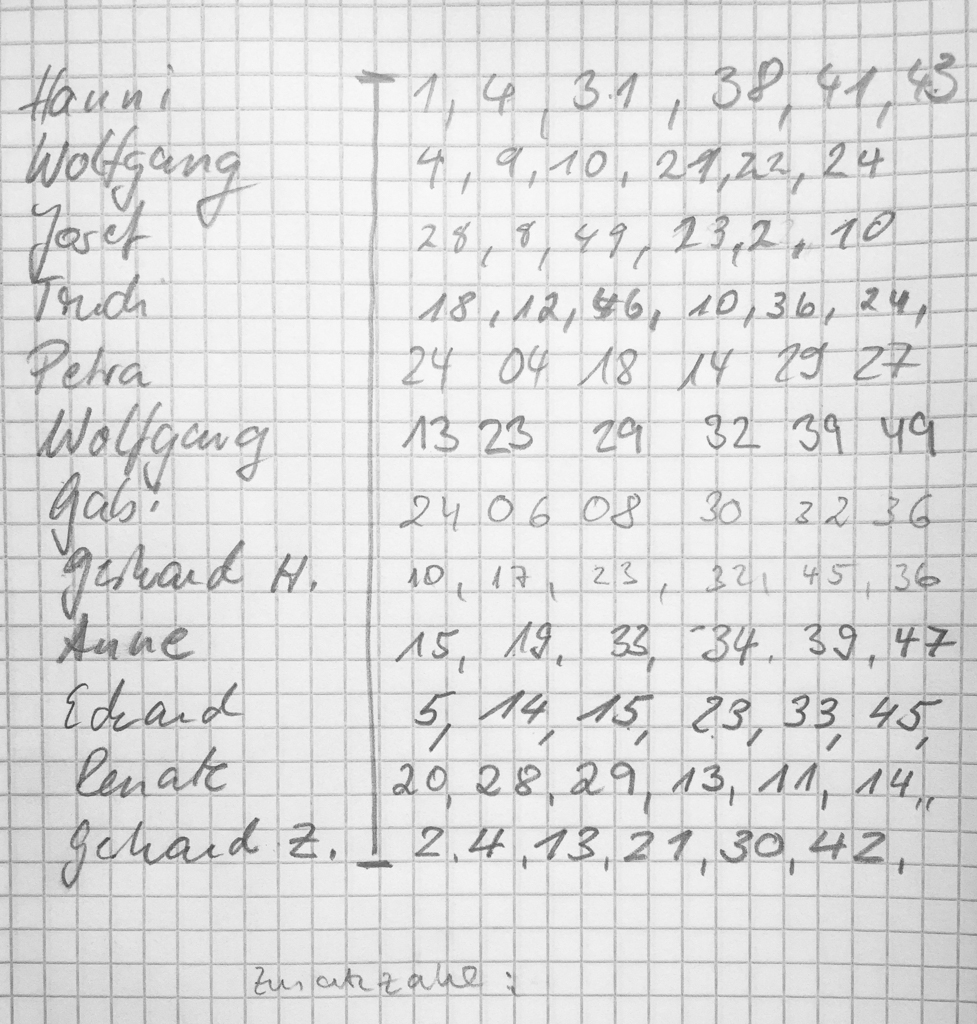 Hanni 1, 4, 31, 38, 41, 43
Wolfgang 4, 9, 10, 21, 22, 24
Josef 28, 8, 49, 23, 2, 10
Trudi 18, 12, 46, 10, 36, 24,
Petra 24 04 18 14 29 27
Wolfgang 13 23 29 32 39 49
Gabi 24 06 08 30 32 36
Gerhard H. 10, 17, 23, 32, 45, 36
Anne 15, 19, 33, 34, 39, 47
Eduard 5, 14, 15, 23, 33, 45,
Renate 20, 28, 29, 13, 11, 14,,
Gerhard Z. 2, 4, 13, 21, 30, 42,
Zusatzzahl :